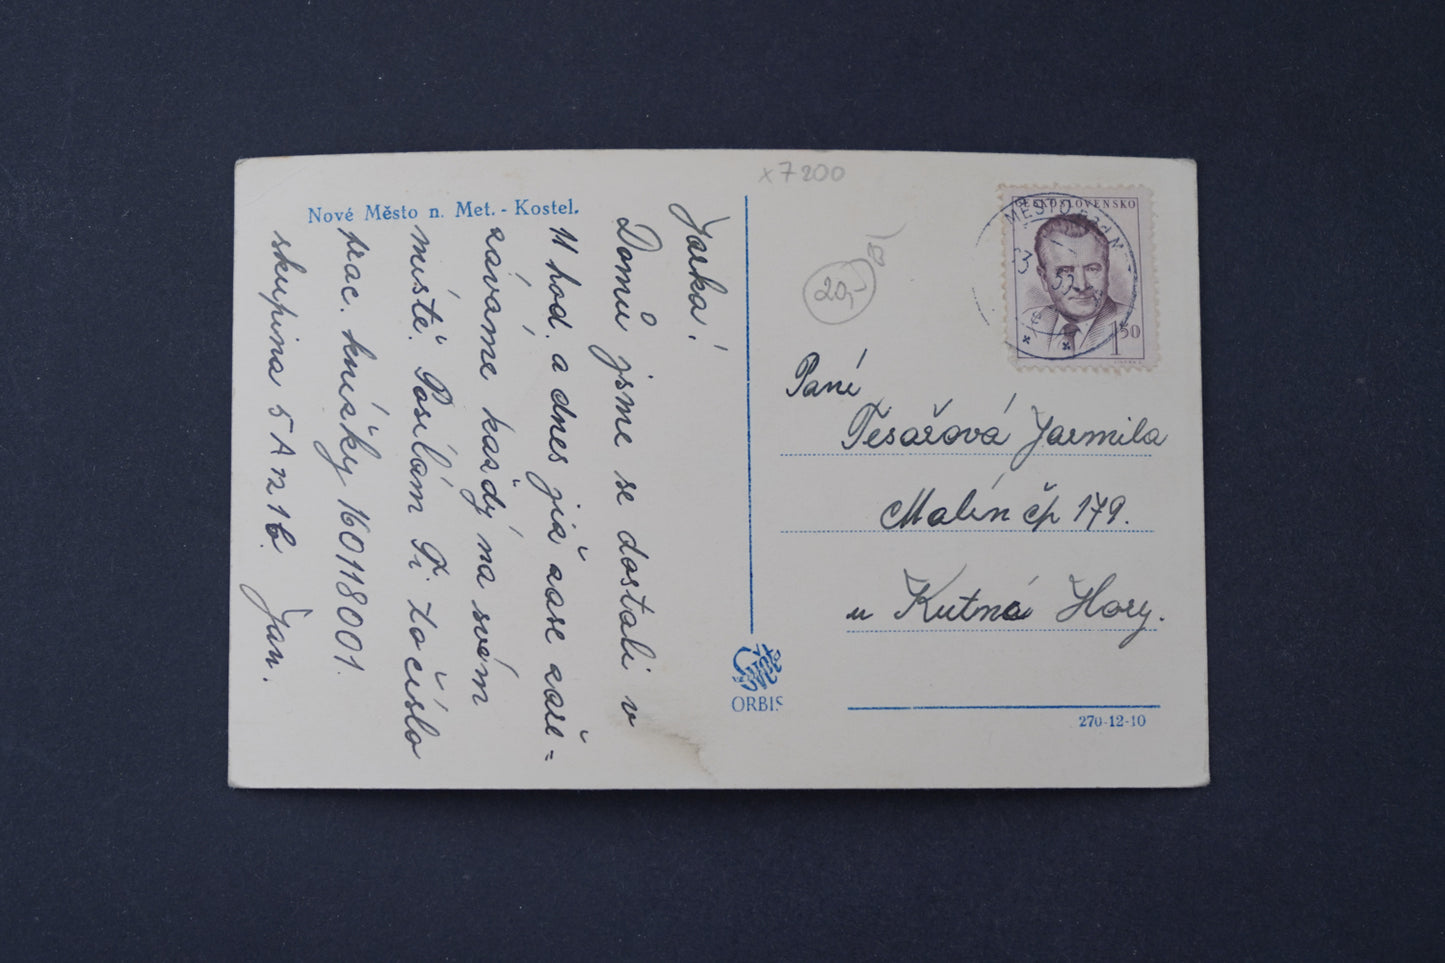 x7200
Nové Město n. Met. - Kostel.
Jarka!
Domů jsme se dostali v
11 hod. a dnes již zase zaře-
záváme každý na svém
místě. Posílám Ti to číslo
prac. knížky 160118001.
skupina 5 A
Jan.
20,-
ČESKOSLOVENSKO
MĚSTO
1 50
Paní
Tesařová Jarmila
Malín čp 179.
u Kutné Hory.
ORBIS
270-12-10